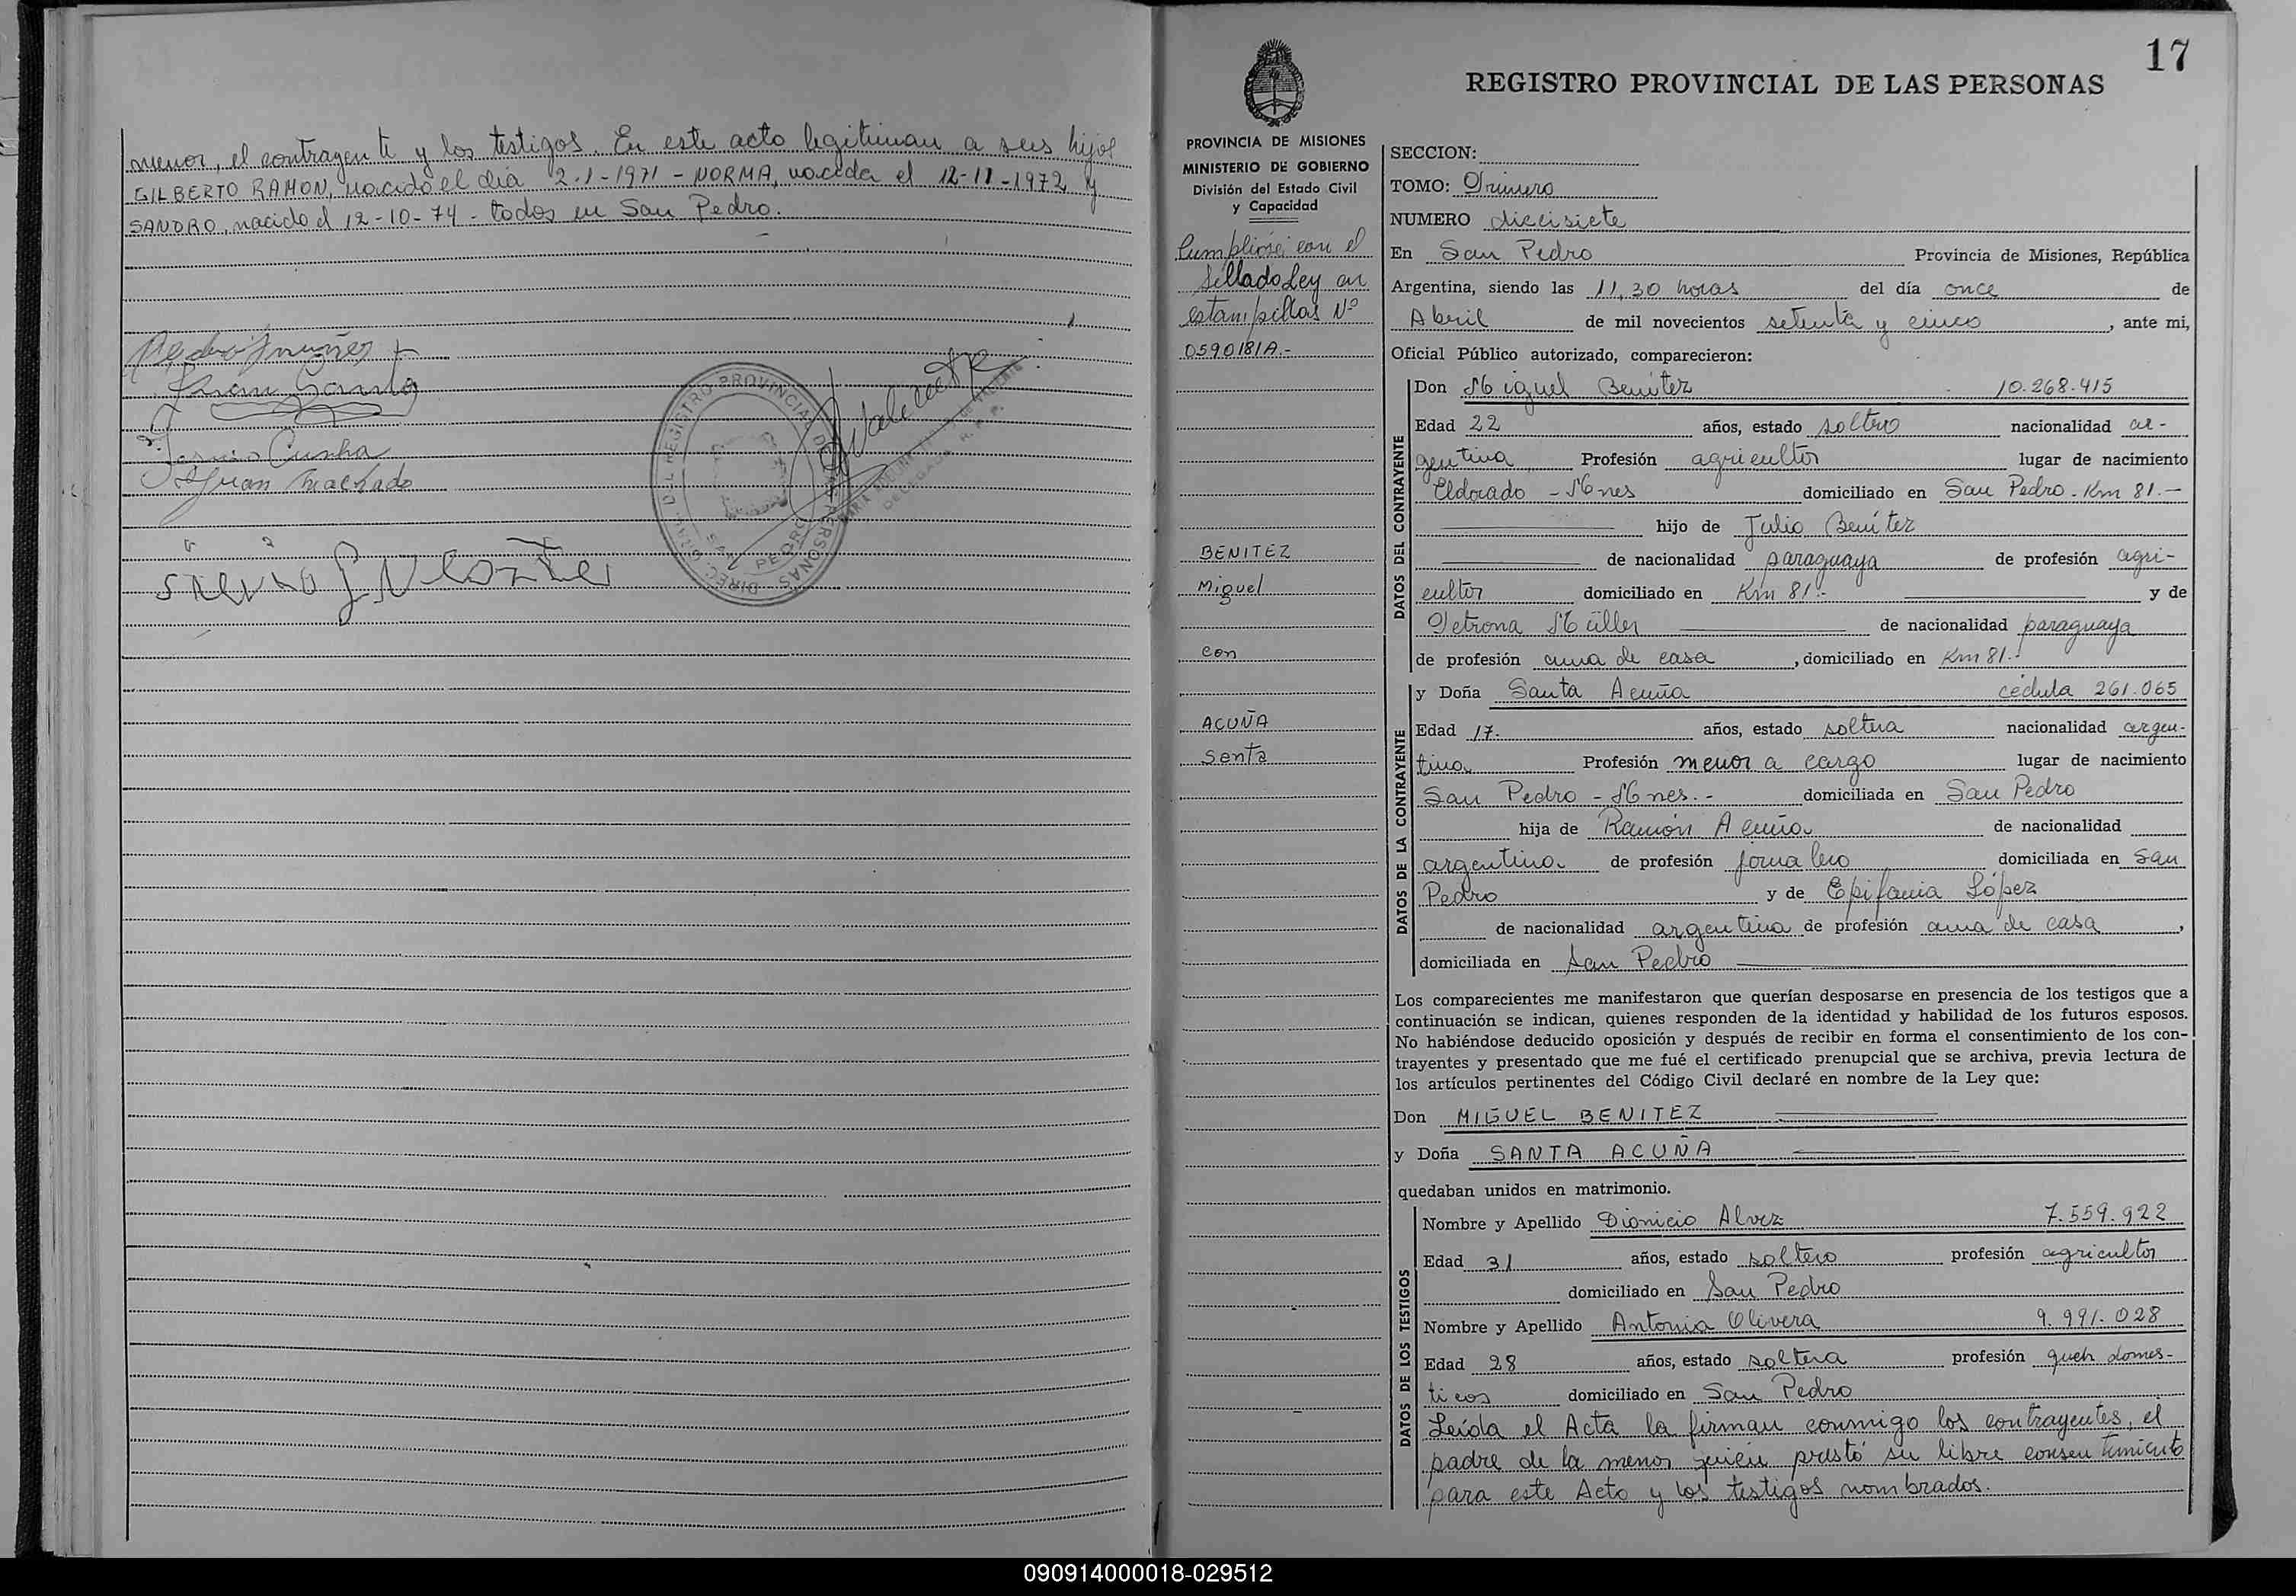 menor, el contrayente y los testigos. En este acto legitiman a sus hijos
GILBERTO RAMON, nacido el día 2-1-1971 - NORMA, nacida el 12-11-1972 y
SANDRO, nacido el 12-10-74 - todos en San Pedro.
Cunha
Juan Machado
DIREC. GRAL. DEL REGISTRO PROVINCIAL DE LAS PERSONAS
SAN PEDRO
17
REGISTRO PROVINCIAL DE LAS PERSONAS
PROVINCIA DE MISIONES
MINISTERIO DE GOBIERNO
División del Estado Civil
y Capacidad
Cumplióse con el
Sellado Ley en
estampillas Nº
0590181A.-
BENITEZ
Miguel
con
ACUÑA
Santa
SECCION:
TOMO: Primero
NUMERO diecisiete
En San Pedro Provincia de Misiones, República
Argentina, siendo las 11,30 horas del día once de
Abril de mil novecientos setenta y cinco, ante mi,
Oficial Público autorizado, comparecieron:
DATOS DEL CONTRAYENTE
Don Miguel Benítez 10.268.415
Edad 22 años, estado soltero nacionalidad ar-
gentina Profesión agricultor lugar de nacimiento
Eldorado - Mnes domiciliado en San Pedro - Km 81.-
hijo de Julio Benítez
de nacionalidad paraguaya de profesión agri-
cultor domiciliado en Km 81.- y de
Petrona Müller de nacionalidad paraguaya
de profesión ama de casa, domiciliado en Km 81.-
DATOS DE LA CONTRAYENTE
y Doña Santa Acuña cédula 261.065
Edad 17. años, estado soltera nacionalidad argen-
tina Profesión menor a cargo lugar de nacimiento
San Pedro - Mnes.- domiciliada en San Pedro
hija de Ramón Acuña de nacionalidad
argentina de profesión jornalero domiciliada en San
Pedro y de Epifania López
de nacionalidad argentina de profesión ama de casa,
domiciliada en San Pedro
Los comparecientes me manifestaron que querían desposarse en presencia de los testigos que a
continuación se indican, quienes responden de la identidad y habilidad de los futuros esposos.
No habiéndose deducido oposición y después de recibir en forma el consentimiento de los con-
trayentes y presentado que me fué el certificado prenupcial que se archiva, previa lectura de
los artículos pertinentes del Código Civil declaré en nombre de la Ley que:
Don MIGUEL BENITEZ
y Doña SANTA ACUÑA
quedaban unidos en matrimonio.
DATOS DE LOS TESTIGOS
Nombre y Apellido Dionicio Alvez 7.559.922
Edad 31 años, estado soltero profesión agricultor
domiciliado en San Pedro
Nombre y Apellido Antonia Olivera 9.991.028
Edad 28 años, estado soltera profesión queh domes-
ticos domiciliado en San Pedro
Leída el Acta la firman conmigo los contrayentes, el
padre de la menor quien prestó su libre consentimiento
para este Acto y los testigos nombrados.
090914000018-029512